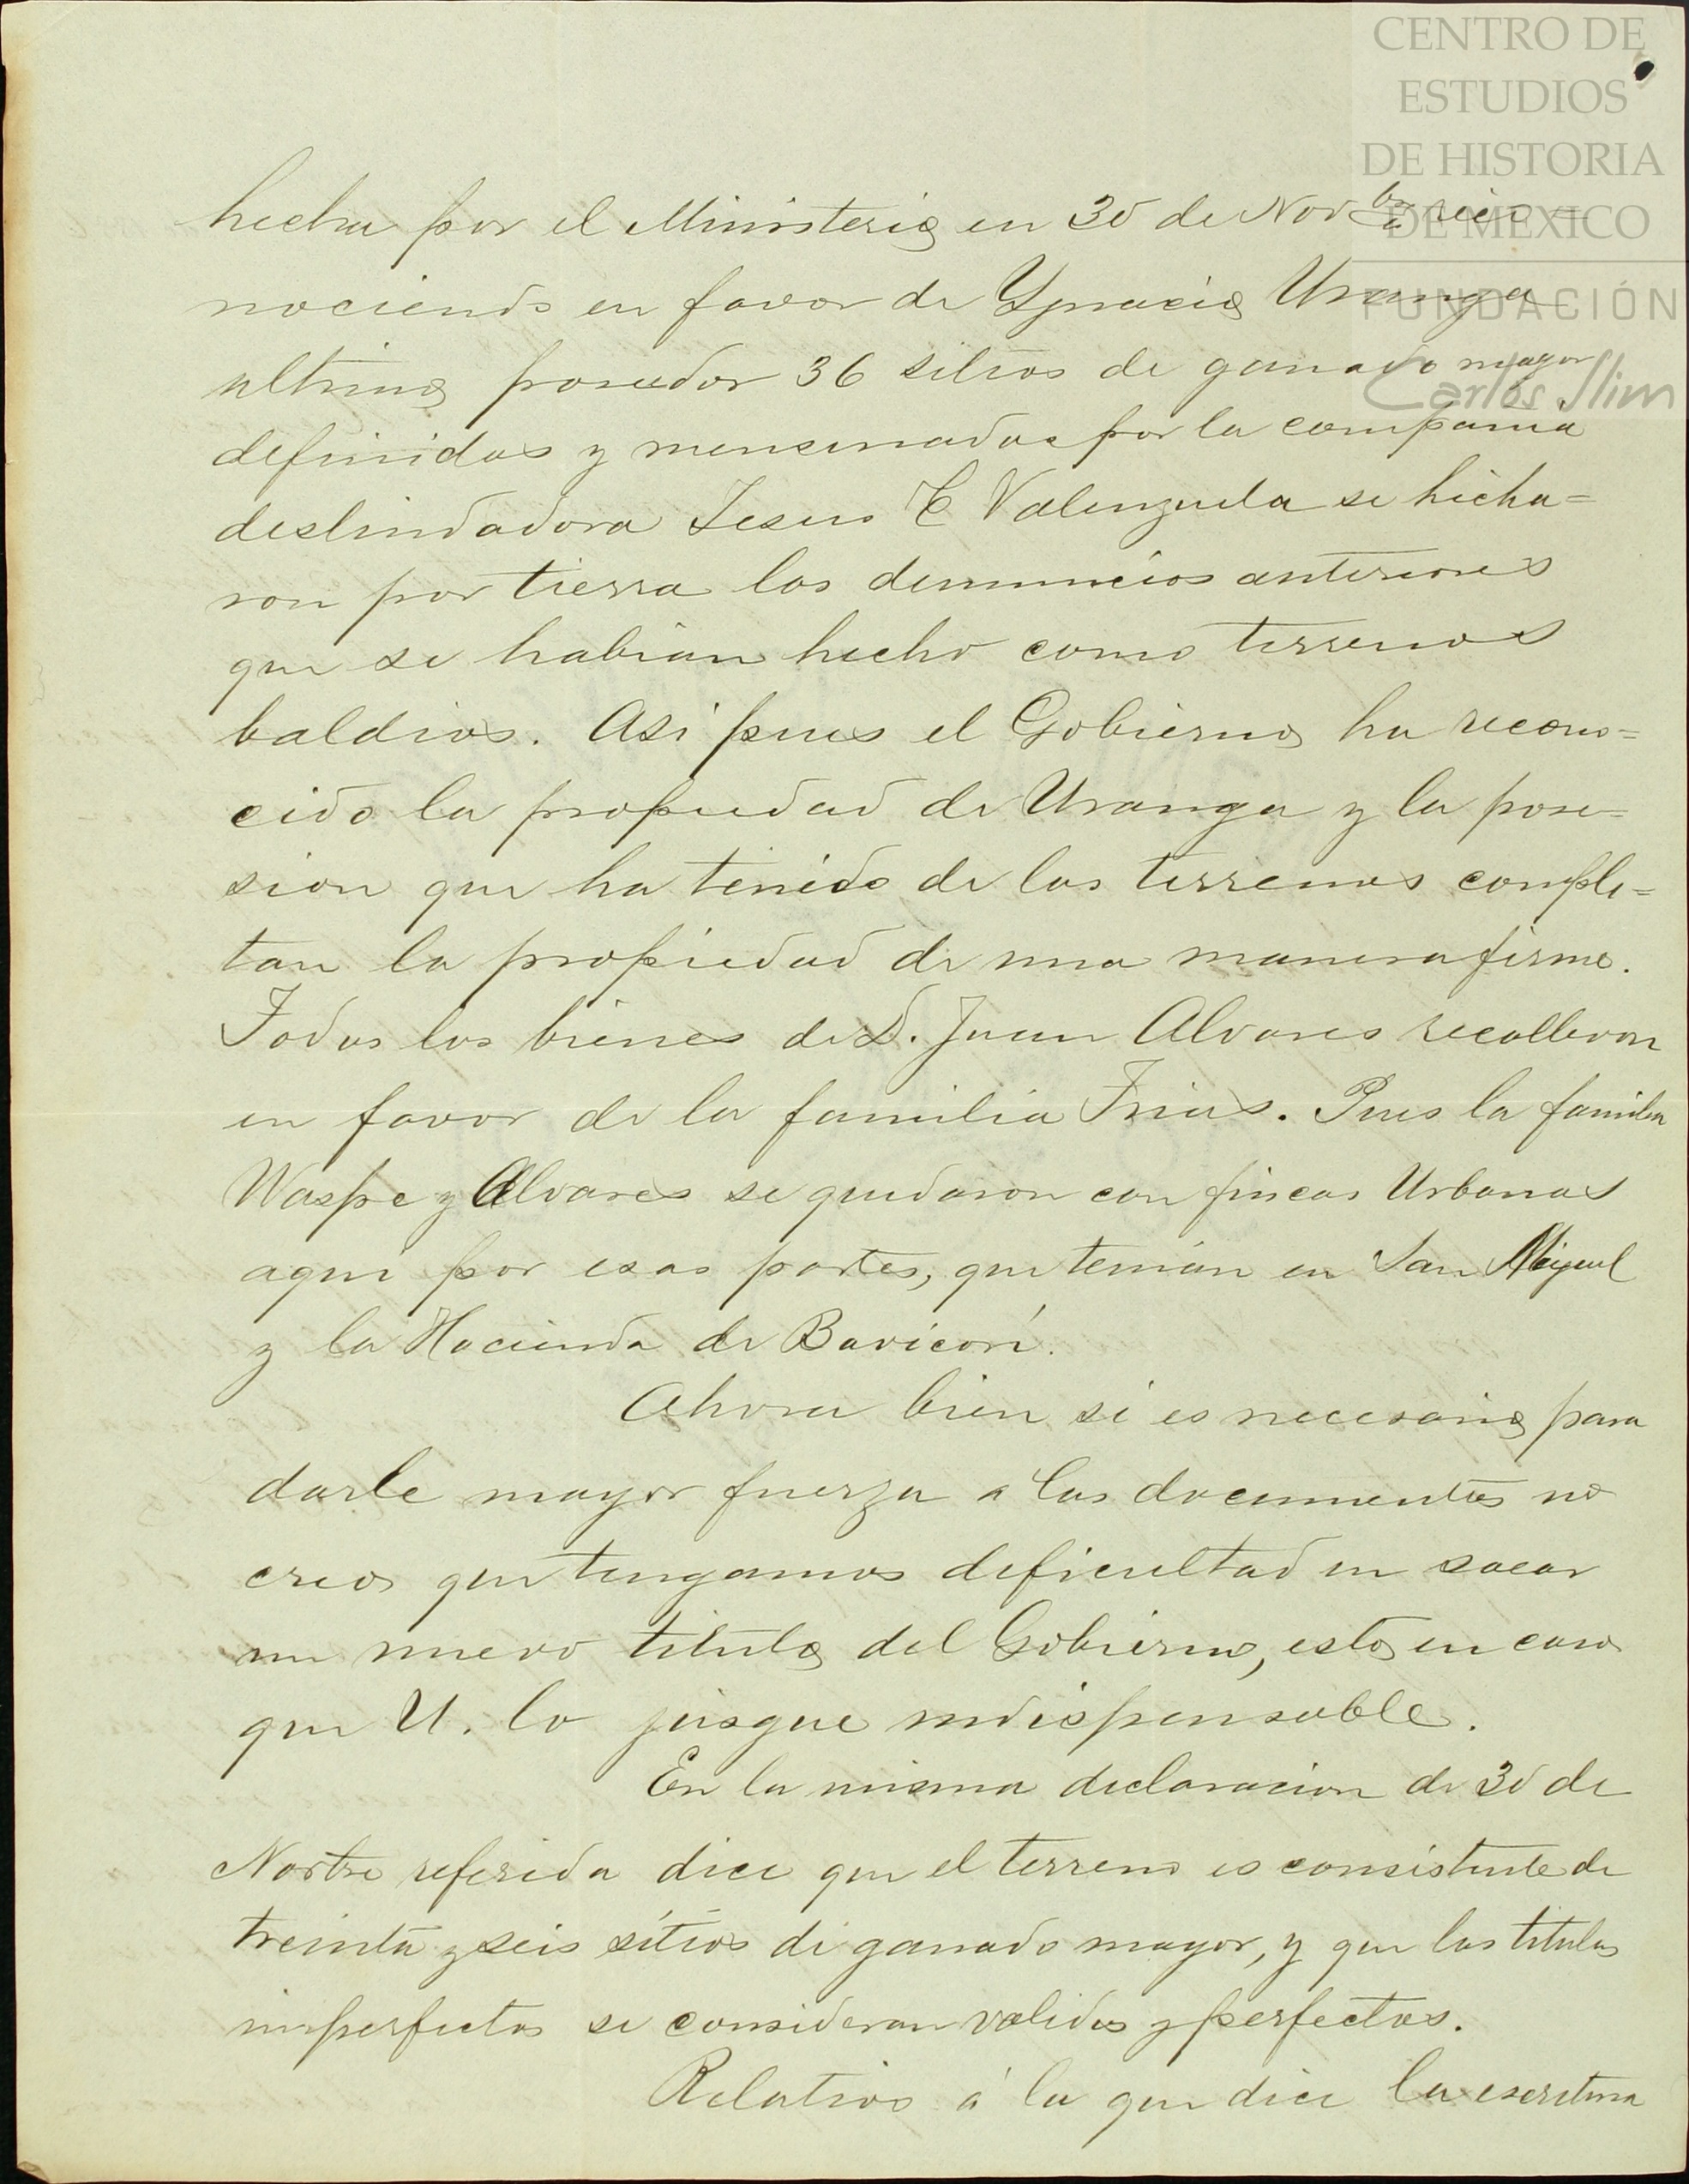 CENTRO DE
ESTUDIOS
DE HISTORIA
DE MEXICO
FUNDACIÓN
Carlos Slim
hecha por el Ministerio en 30 de Novbre reco-
nociendo en favor de Ygnacio Uranga
ultimo poseedor 36 sitios de ganado mayor
definidos y mensurados por la compania
deslindadora Jesus E Valenzuela se hicha=
ron por tierra los denuncios anteriores
que se habian hecho como terrenos
baldios. Asi pues el Gobierno ha recono=
cido la propiedad de Uranga y la pose=
sion que ha tenido de los terrenos comple=
tan la propiedad de una manera firme.
Todos los bienes de D. Juan Alvares recalleron
en favor de la familia Frias. Pues la familia
Waspe y Alvares se quedaron con fincas Urbanas
aqui por esas partes, que tenian en San Miguel
y la Hacienda de Bavicorí.
Ahora bien si es necesario para
darle mayor fuerza a los documentos no
creo que tengamos deficultad en sacar
un nuevo titulo del Gobierno, esto en caso
que U. lo jusgue indispensable.
En la misma declaracion de 30 de
Novbre referida dice que el terreno es consistente de
treinta y seis sítios de ganado mayor, y que los titulos
imperfectos se consideran validos y perfectos.
Relativo á lo que dice la escritura